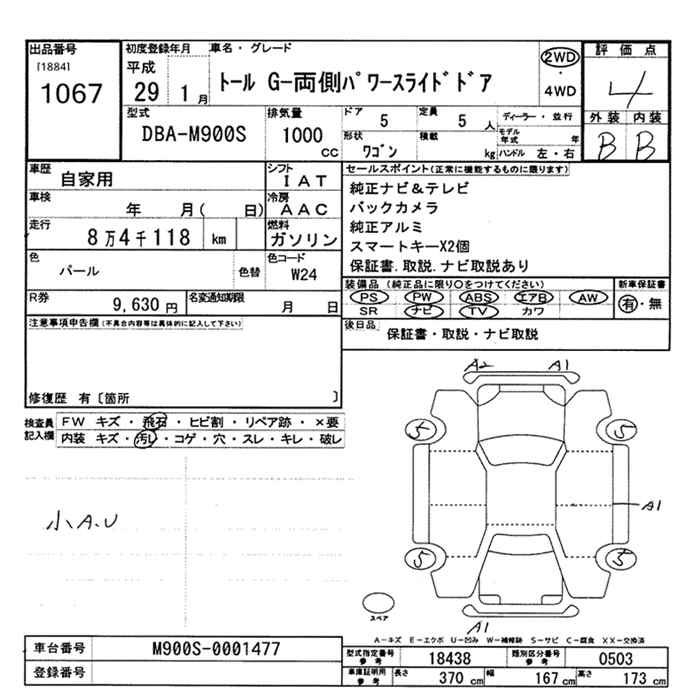 出品番号
[1884]
1067
初度登録年月
平成
29 1月
車名・グレード
トール G-両側パワースライドドア
2WD
・
4WD
評価点
4
外装 内装
B B
型式
DBA-M900S
排気量
1000
CC
ドア
5
定員
5人
形状
ワゴン
積載
kg
ディーラー・並行
モデル年式 年
ハンドル 左・右
車歴
自家用
シフト
IAT
車検
年 月( 日)
冷房
AAC
走行
8万4千118 km
燃料
ガソリン
色
パール
色替
色コード
W24
R券
9,630円
名変通知期限
月 日
セールスポイント(正常に機能するものに限ります)
純正ナビ&テレビ
バックカメラ
純正アルミ
スマートキーX2個
保証書.取説.ナビ取説あり
装備品 (純正品に限り○をつけてください)
PS PW ABS エアB AW
SR ナビ TV カワ
新車保証書
有・無
後日品
保証書・取説・ナビ取説
注意事項申告欄(不具合内容等は具体的に記入して下さい)
修復歴 有〔箇所 〕
検査員
記入欄
FW キズ・飛石・ヒビ割・リペア跡・×要
内装 キズ・汚レ・コゲ・穴・スレ・キレ・破レ
小A.U
A2 A1
5 5
A1
5 5
スペア
A1
A-キズ E-エクボ U-凹み W-補修跡 S-サビ C-腐食 XX-交換済
車台番号
M900S-0001477
登録番号
型式指定番号
参考
18438
類別区分番号
参考
0503
車庫証明用
参考
長さ
370cm
幅
167cm
高さ
173cm